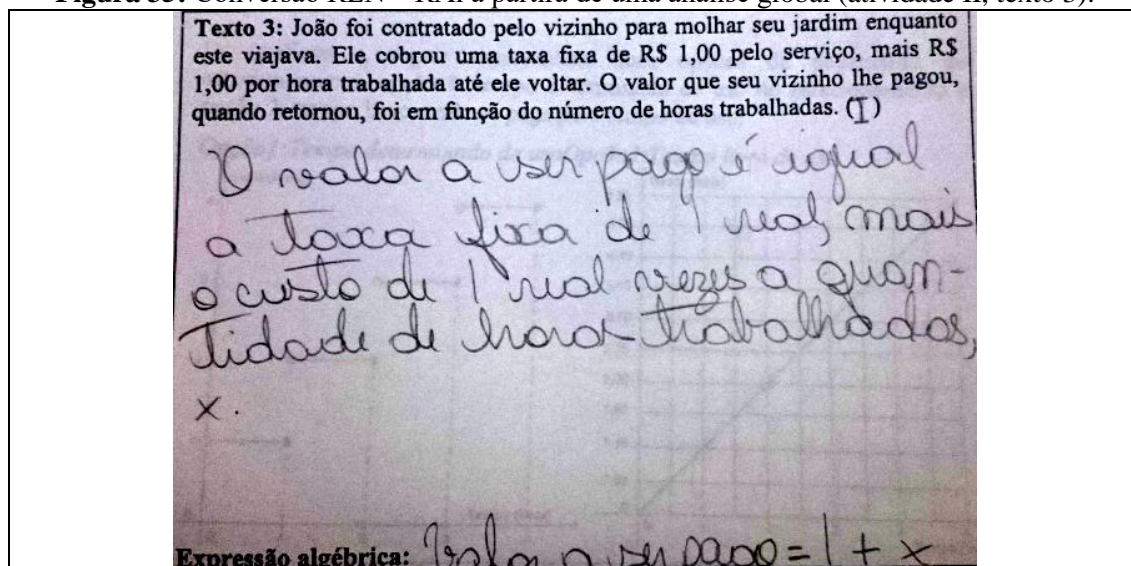 Texto 3: João foi contratado pelo vizinho para molhar seu jardim enquanto
este viajava. Ele cobrou uma taxa fixa de R$ 1,00 pelo serviço, mais R$
1,00 por hora trabalhada até ele voltar. O valor que seu vizinho lhe pagou,
quando retornou, foi em função do número de horas trabalhadas. (I)
O valor a ser pago é igual
a taxa fixa de 1 real, mais
o custo de 1 real vezes a quan-
tidade de horas trabalhadas,
x.
Expressão algébrica: Valor a ser pago = 1 + x